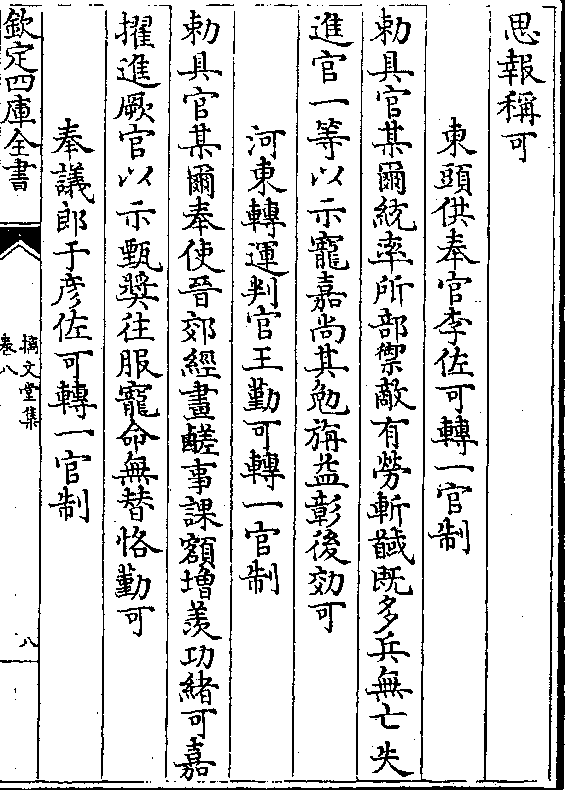 思報稱可
東頭供奉官李佐可轉一官制
勅具官某爾統率所部禦敵有勞斬馘既多兵無亡失
進官一等以示寵嘉尚其勉旃益彰後効可
河東轉運判官王勤可轉一官制
勅具官某爾奉使晉郊經畫鹺事課額增羨功緒可嘉
擢進厥官以示甄奬往服寵命無替恪勤可
奉議郎于彦佐可轉一官制
欽定四庫全書
摛文堂集
卷八
八